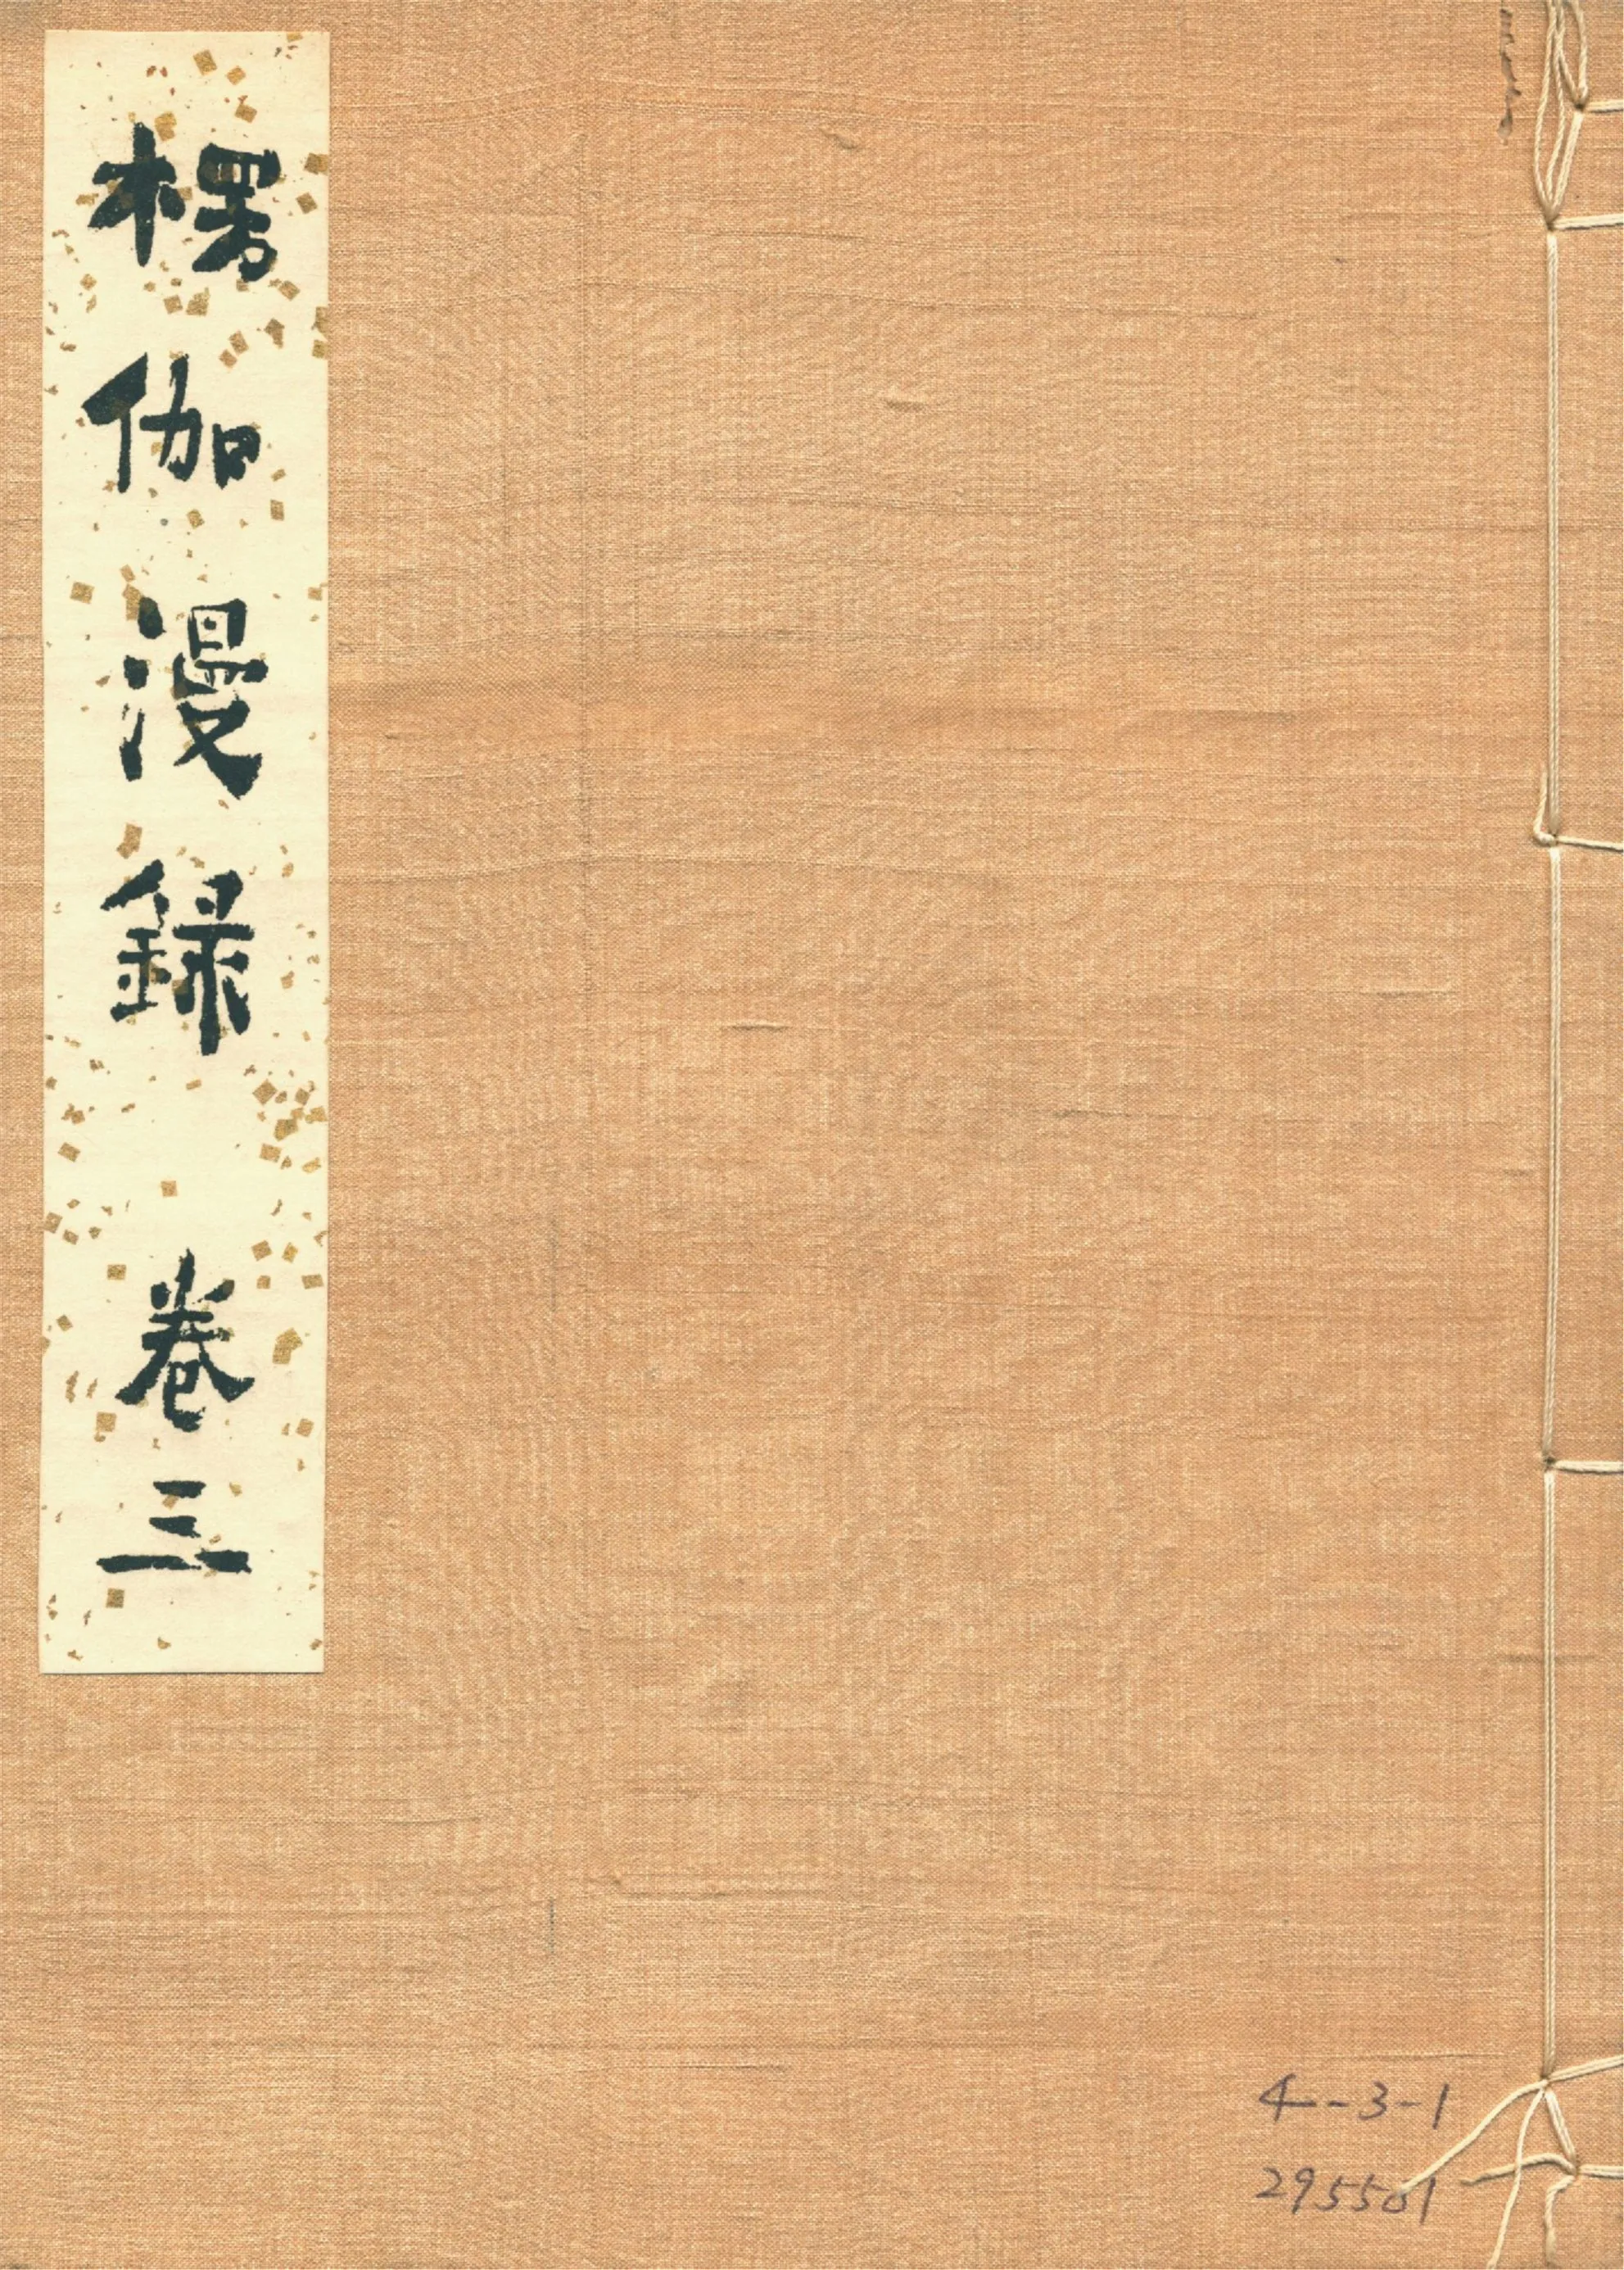 楞伽漫録 卷三
4-3-1
295501